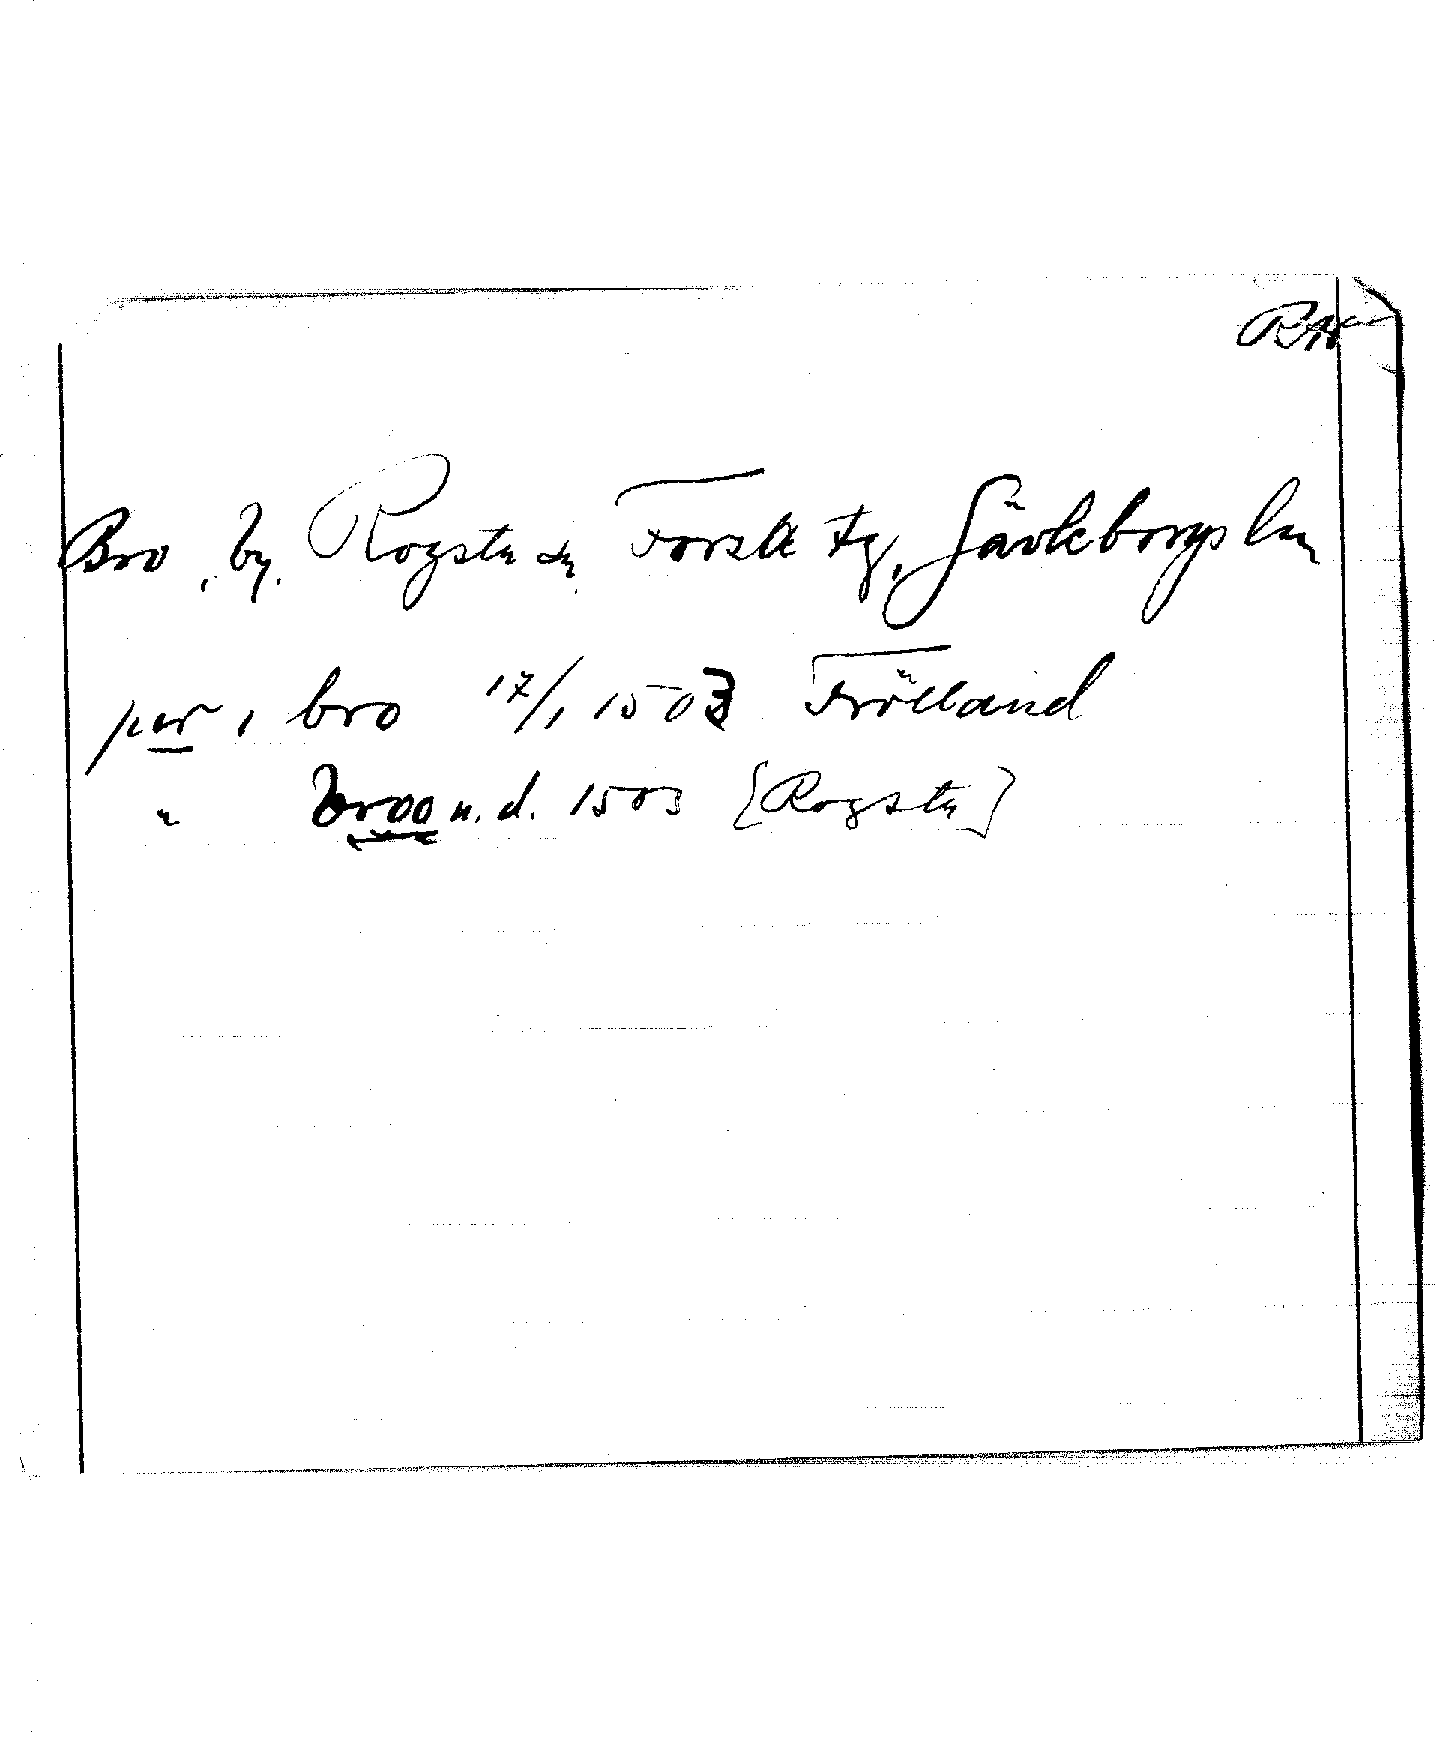 RA
Bro, by. Rogsta sn Forsa tg, Gävleborgs län
per i bro 17/1 1503 Frölland
" broo u. d. 1503 [Rogsta]